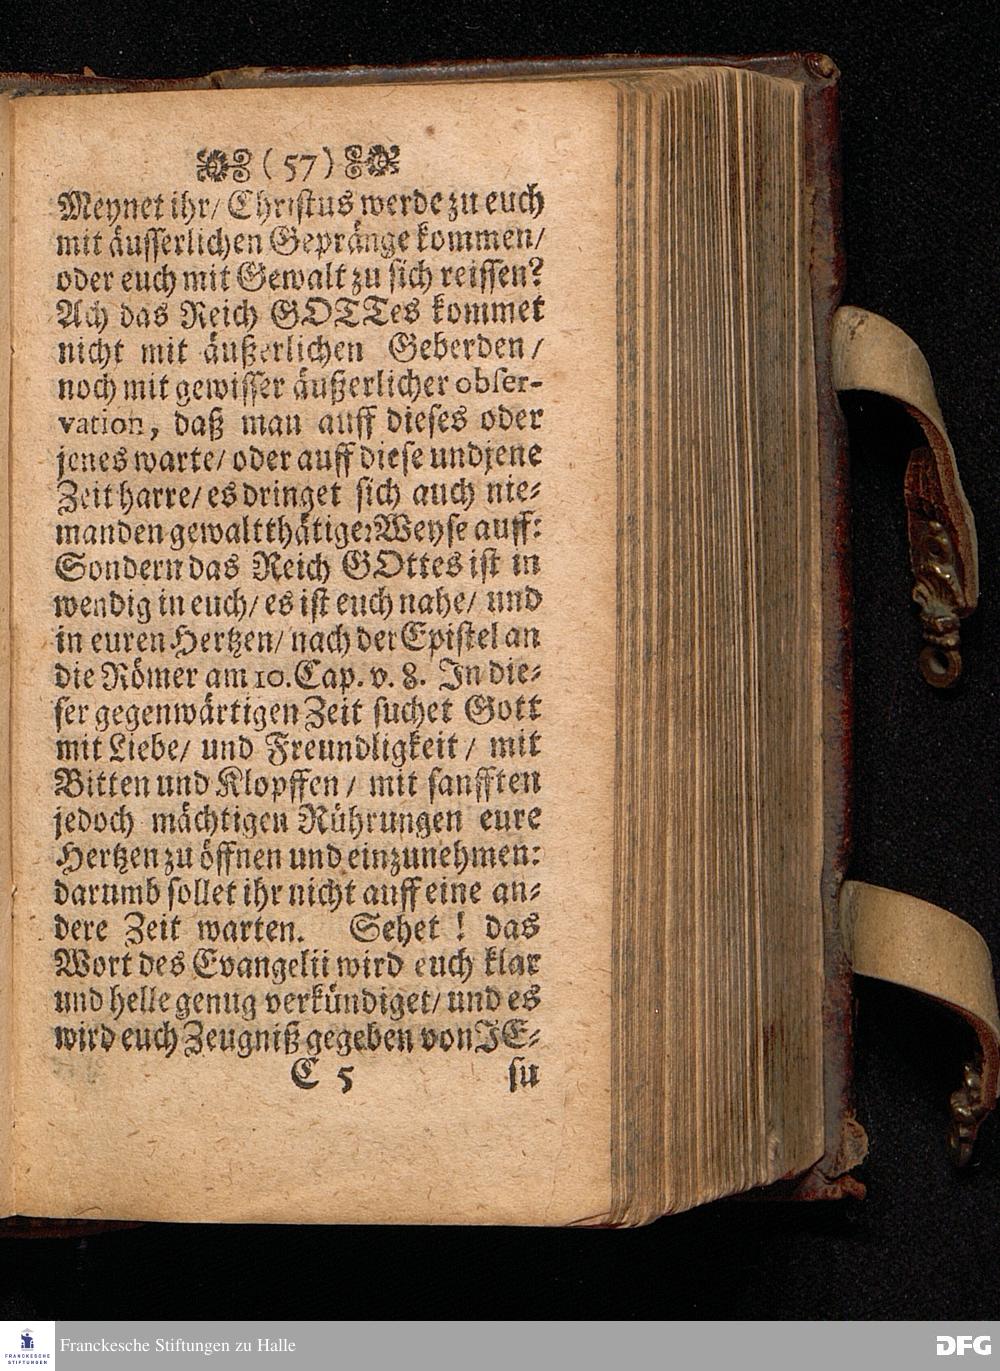 (57)
Meynet ihr/ Christus werde zu euch
mit äusserlichen Gepränge kommen/
oder euch mit Gewalt zu sich reissen?
Ach das Reich GOTTes kommet
nicht mit äußerlichen Geberden/
noch mit gewisser äußerlicher obser-
vation, daß man auff dieses oder
jenes warte/ oder auff diese und jene
Zeit harre/ es dringet sich auch nie-
manden gewaltthätiger Weyse auff:
Sondern das Reich GOttes ist in
wendig in euch/ es ist euch nahe/ und
in euren Hertzen/ nach der Epistel an
die Römer am 10. Cap. v. 8. In die-
ser gegenwärtigen Zeit suchet Gott
mit Liebe/ und Freundligkeit/ mit
Bitten und Klopffen/ mit sanfften
jedoch mächtigen Rührungen eure
Hertzen zu öffnen und einzunehmen:
darumb sollet ihr nicht auff eine an-
dere Zeit warten. Sehet! das
Wort des Evangelii wird euch klar
und helle genug verkündiget/ und es
wird euch Zeugniß gegeben von JE-
C 5 su
FRANCKESCHE STIFTUNGEN
Franckesche Stiftungen zu Halle
DFG